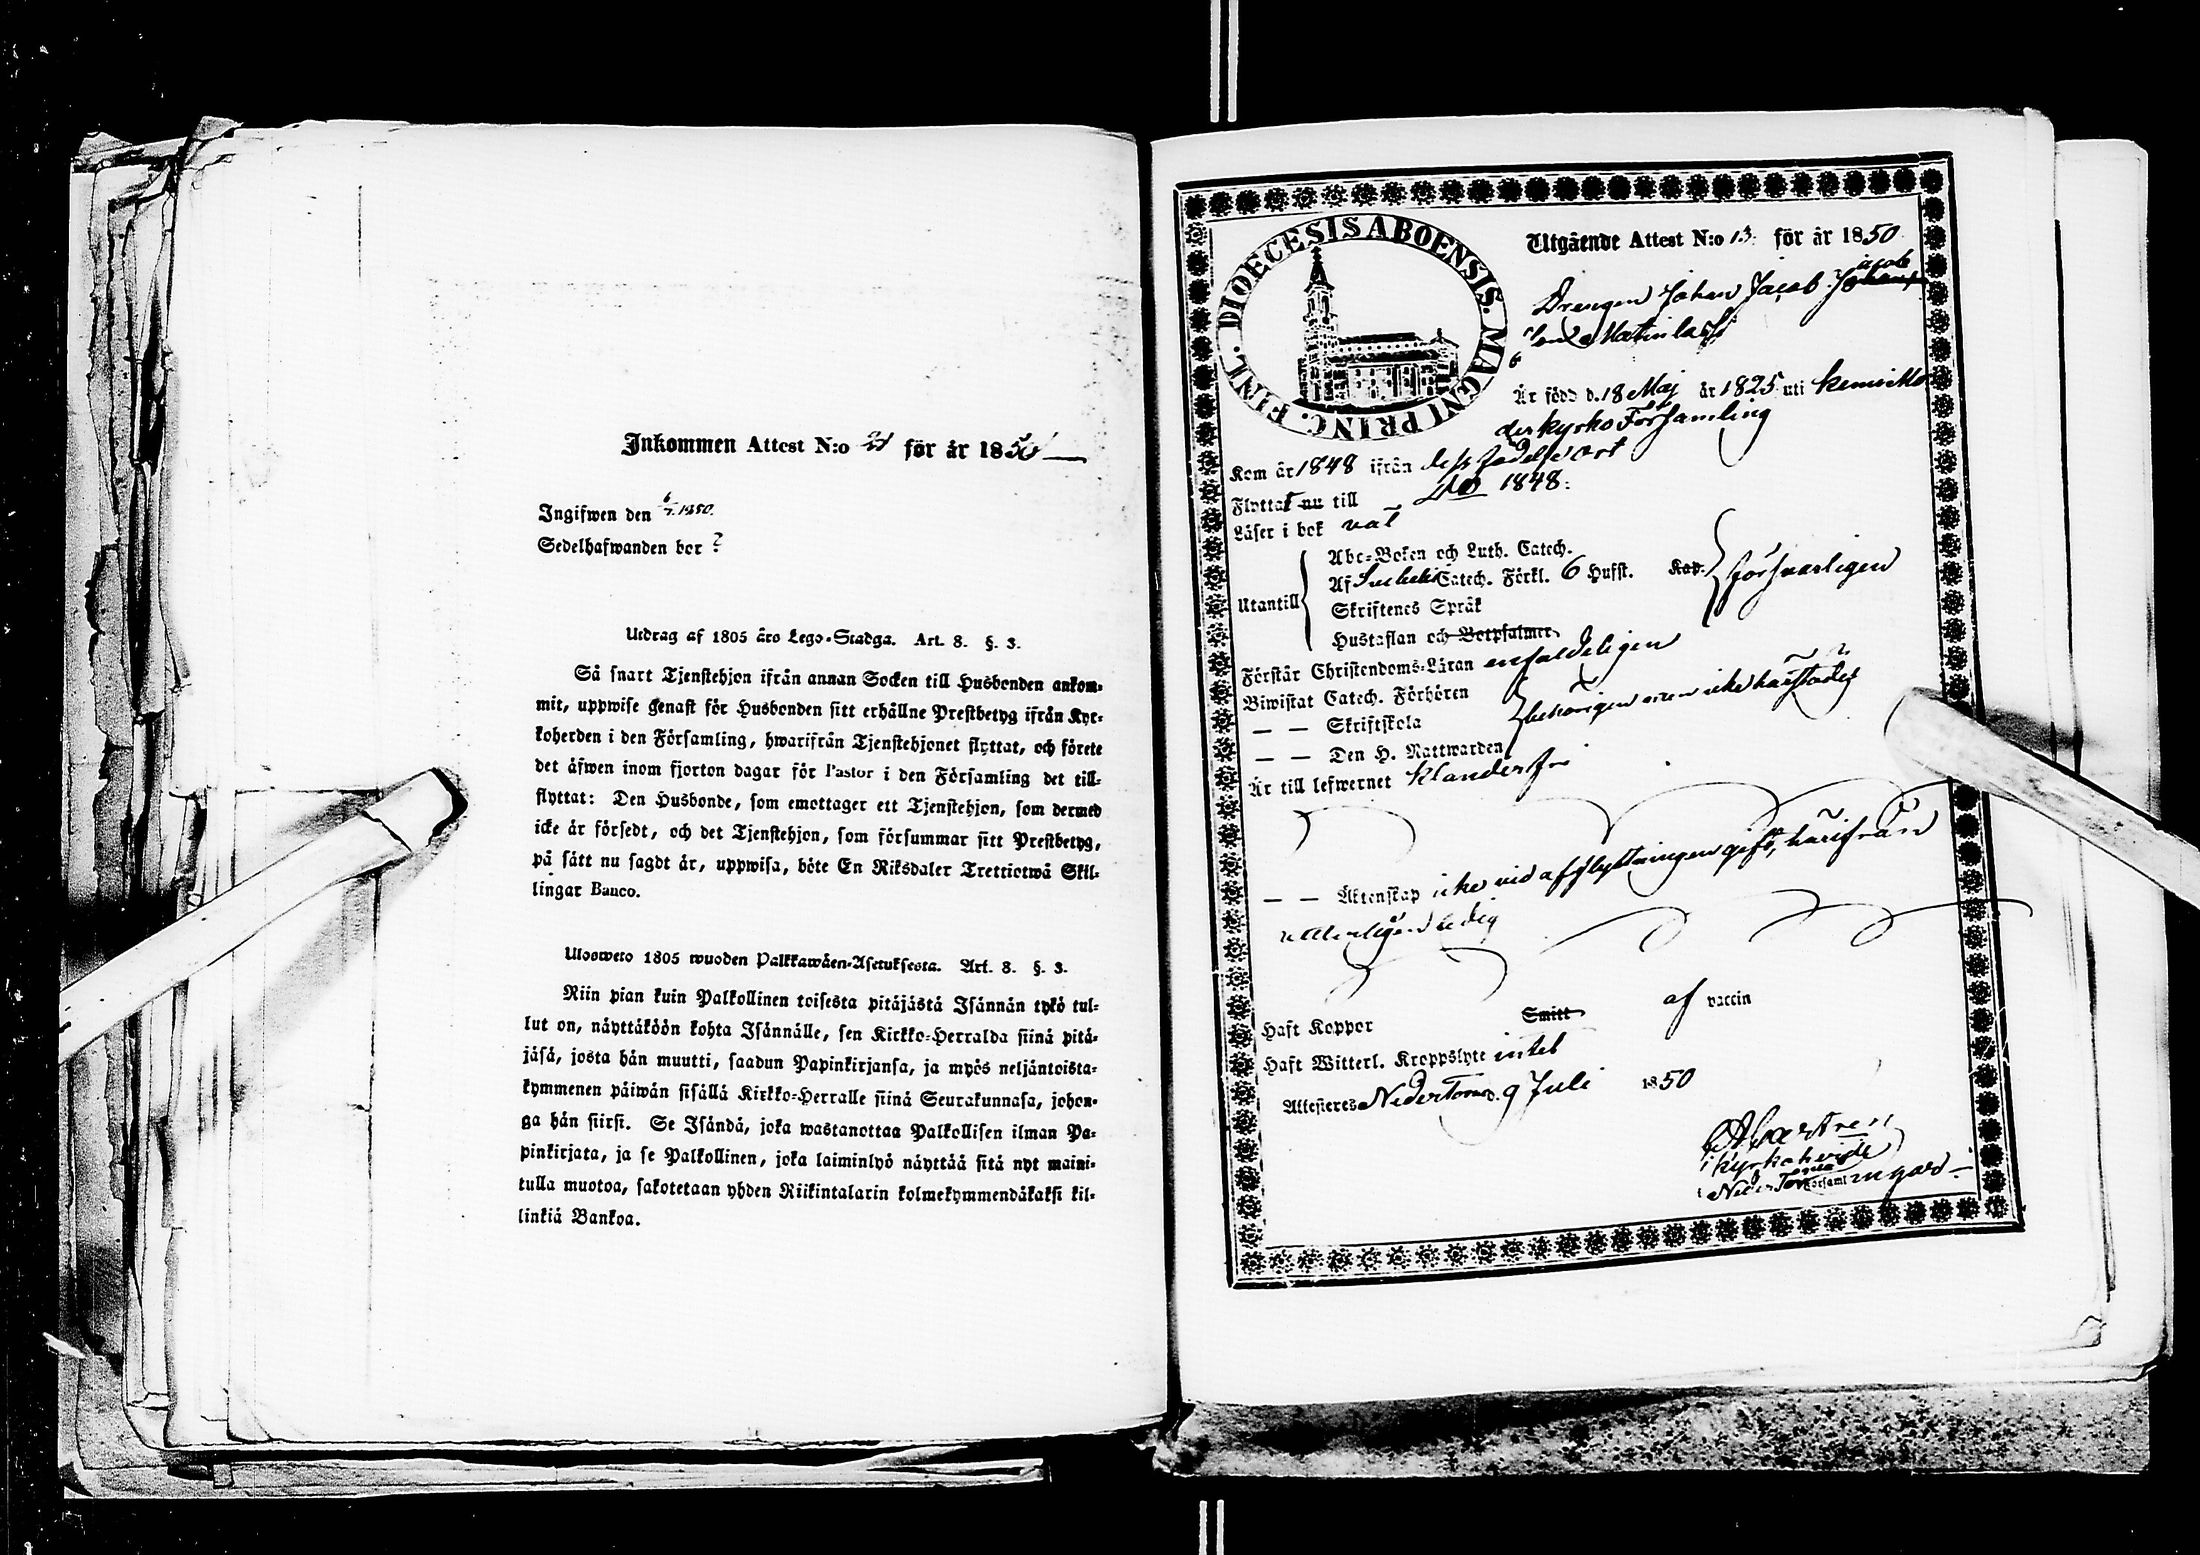 Inkommen Attest N:o 21 för år 1850
Ingifwen den 6/7. 1850.
Sedelhafwanden bor ?
Utdrag af 1805 års Lego-Stadga. Art. 8. §. 3.
Så snart Tjenstehjon ifrån annan Socken till Husbonden ankom-
mit, uppwise genast för Husbonden sitt erhållne Prestbetyg ifrån Kyr-
koherden i den Församling, hwarifrån Tjenstehjonet flyttat, och förete
det äfwen inom fjorton dagar för Pastor i den Församling det till-
flyttat: Den Husbonde, som emottager ett Tjenstehjon, som dermed
icke är försedt, och det Tjenstehjon, som försummar sitt Prestbetyg,
på sätt nu sagdt är, uppwisa, böte En Riksdaler Trettiotwå Skil-
lingar Banco.
Ulosweto 1805 wuoden Palkkawäen-Asetuksesta. Art. 8. §. 3.
Niin pian kuin Palkollinen toisesta pitäjästä Isännän tykö tul-
lut on, näyttäköön kohta Isännälle, sen Kirkko-Herralda siinä pitä-
jäsä, josta hän muutti, saadun Papinkirjansa, ja myös neljäntoista-
kymmenen päiwän sisällä Kirkko-Herralle siinä Seurakunnasa, johon-
ga hän siirsi. Se Isändä, joka wastanottaa Palkollisen ilman Pa-
pinkirjata, ja se Palkollinen, joka laiminlyö näyttää sitä nyt maini-
tulla muotoa, sakotetaan yhden Riikintalarin kolmekymmendäkaksi kil-
linkiä Bankoa.
DIOECESIS ABOENSIS. MAGNI PRINC. FINL.
Utgående Attest N:o 13. för år 1850
Drengen Johan Jacob Jacobs
son Matinlassi
Är född d. 18 Maj år 1825 uti Kemi Mo
derkyrko Församling
Kom år 1848 ifrån dess födelseort
Flyttat nu till 1848.
Läser i bok väl
Abc-Boken och Luth. Catech.
Af Svebelii Catech. Förkl. 6 Hufst. Kap. försvarligen
Utantill
Skriftenes Språk
Hustaflan och Botpsalmer.
Förstår Christendoms-Läran enfaldeligen
Biwistat Catech. Förhören
— — Skriftskola behörigen men icke härstädes
— — Den H. Nattwarden
Är till lefwernet klanderfri
— — Äktenskap icke vid afflyttningen gift, härifrån
vitterligen ledig
Haft Koppor Smitt af vaccin
Haft Witterl. Kroppslyte intet
Attesteres Neder Torneå d. 9 Juli 1850
Castren
Kyrkoherde
i Neder Torneå Församl